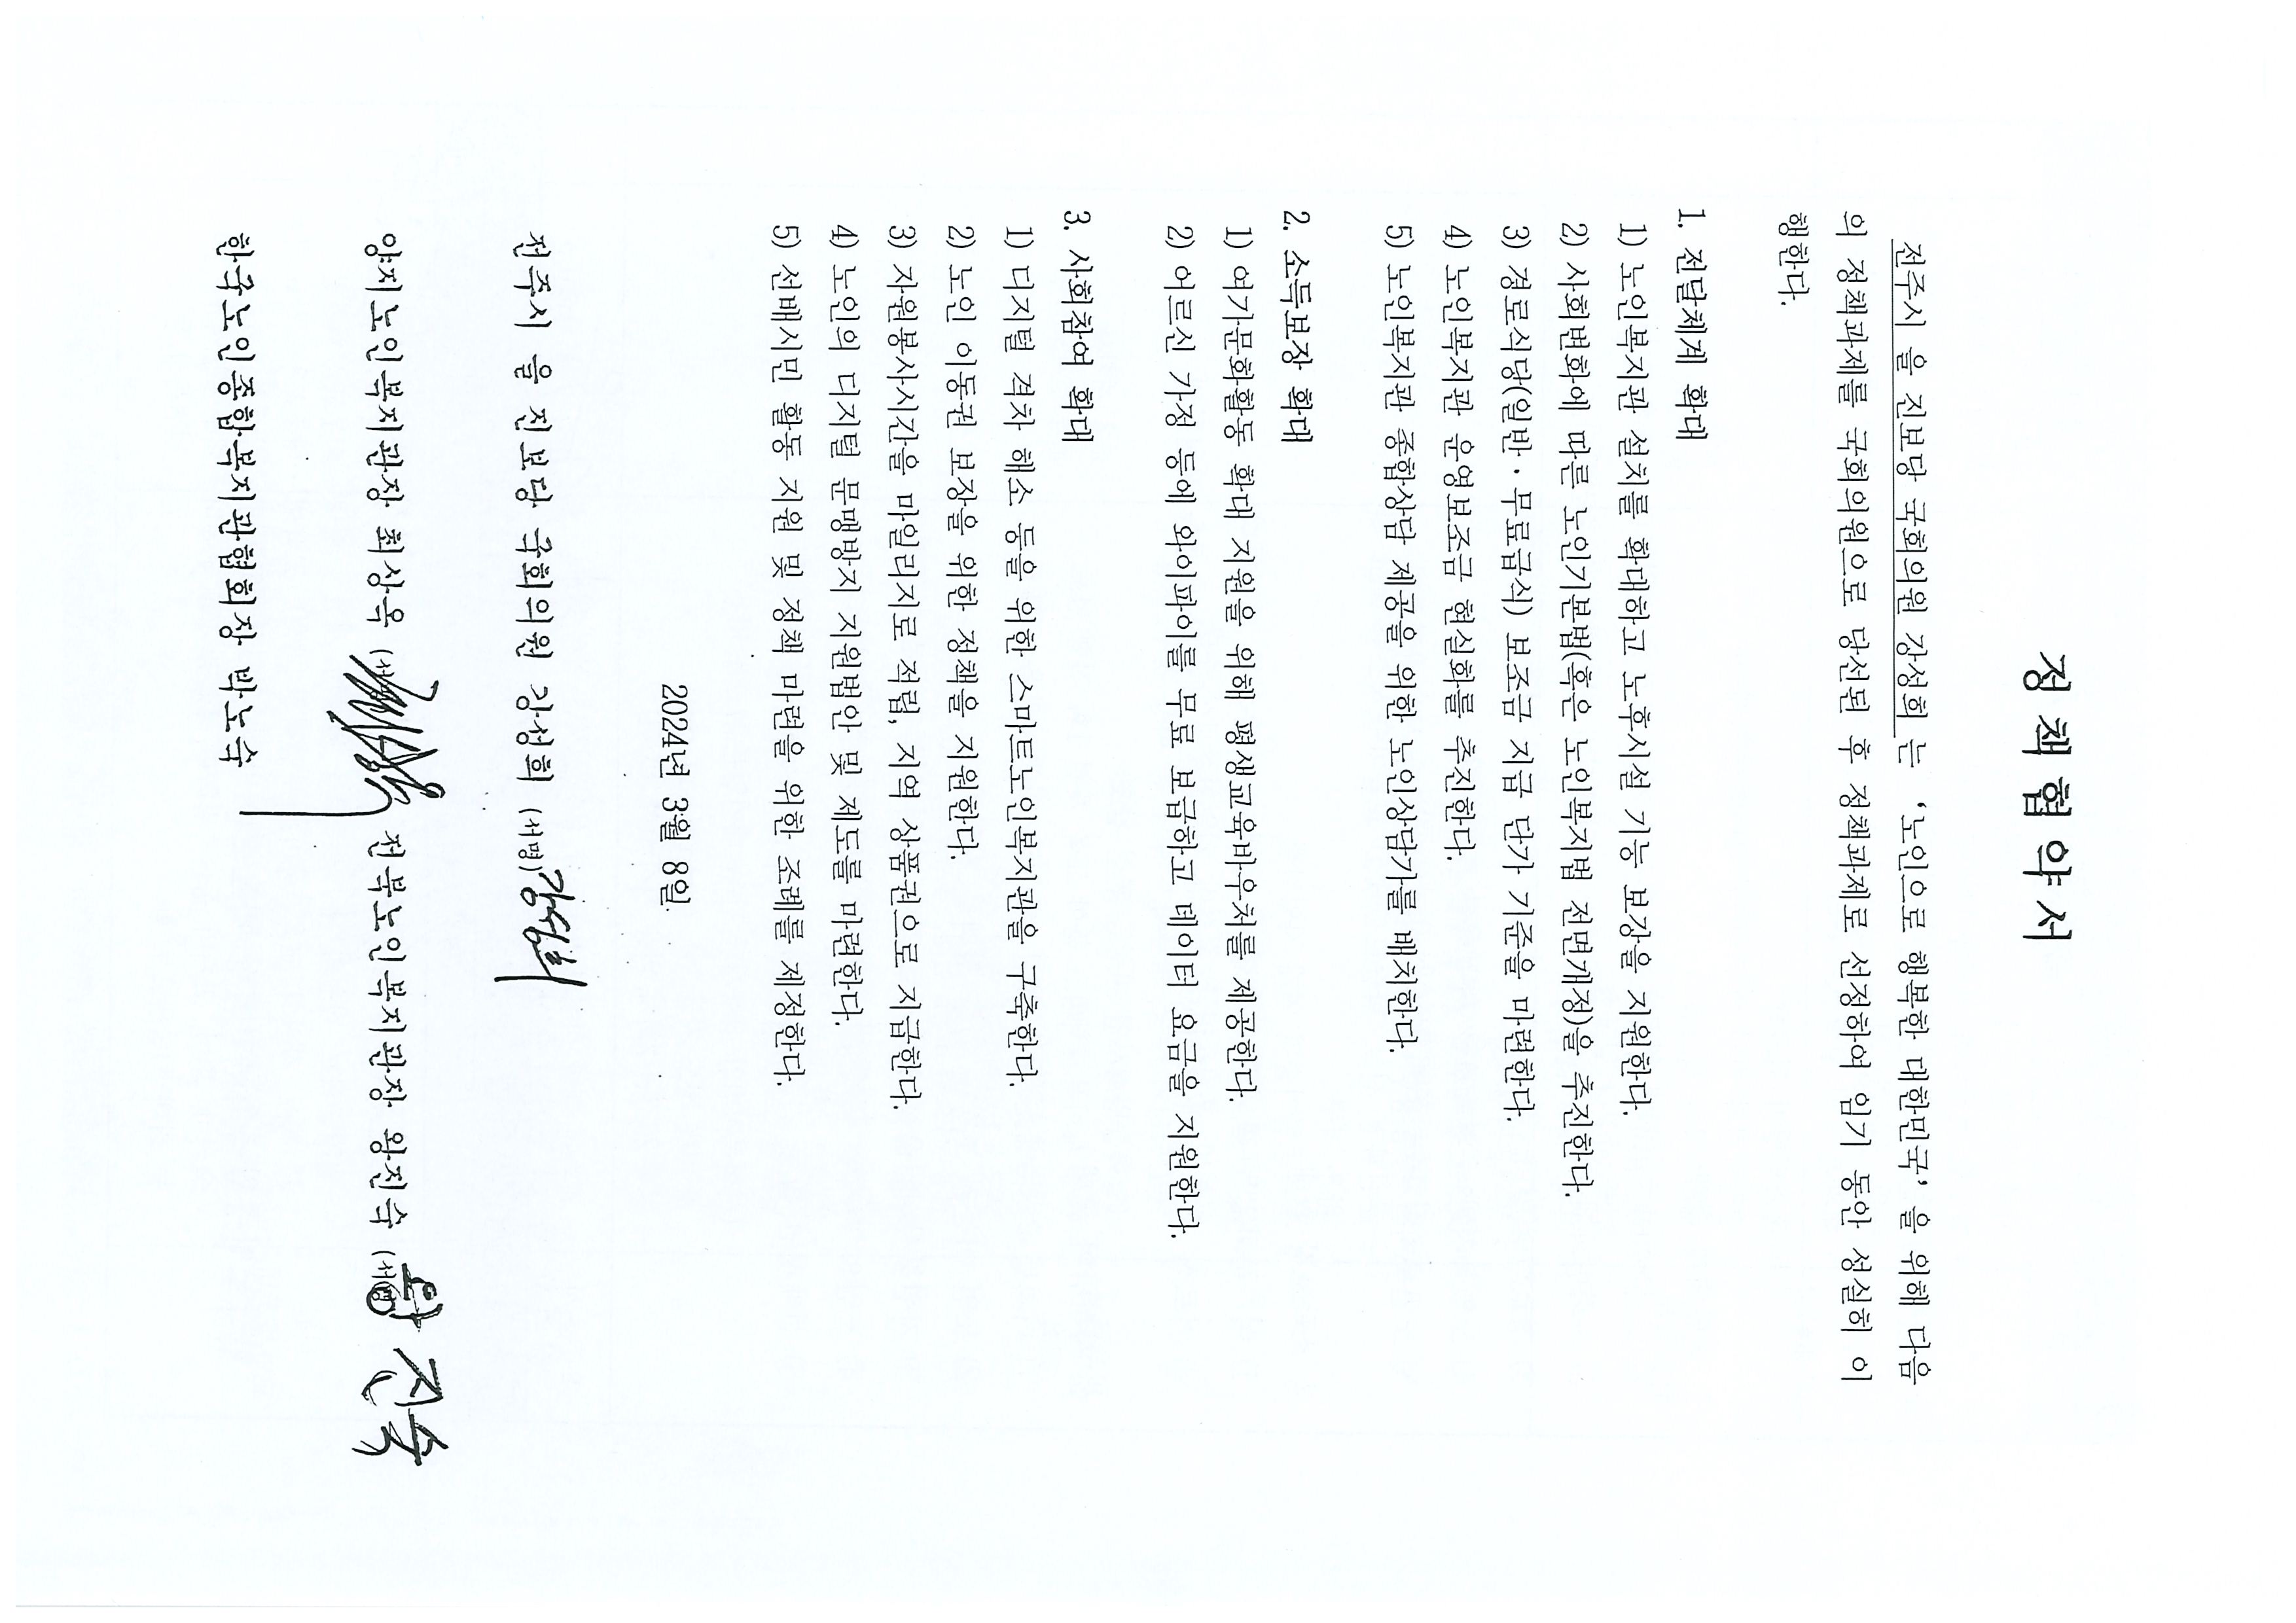 정 책 협 약 서
전주시 을 진보당 국회의원 강성희 는 ‘노인으로 행복한 대한민국’ 을 위해 다음
의 정책과제를 국회의원으로 당선된 후 정책과제로 선정하여 임기 동안 성실히 이
행한다.
1. 전달체계 확대
1) 노인복지관 설치를 확대하고 노후시설 기능 보강을 지원한다.
2) 사회변화에 따른 노인기본법(혹은 노인복지법 전면개정)을 추진한다.
3) 경로식당(일반·무료급식) 보조금 지급 단가 기준을 마련한다.
4) 노인복지관 운영보조금 현실화를 추진한다.
5) 노인복지관 종합상담 제공을 위한 노인상담가를 배치한다.
2. 소득보장 확대
1) 여가문화활동 확대 지원을 위해 평생교육바우처를 제공한다.
2) 어르신 가정 등에 와이파이를 무료 보급하고 데이터 요금을 지원한다.
3. 사회참여 확대
1) 디지털 격차 해소 등을 위한 스마트노인복지관을 구축한다.
2) 노인 이동권 보장을 위한 정책을 지원한다.
3) 자원봉사시간을 마일리지로 적립, 지역 상품권으로 지급한다.
4) 노인의 디지털 문맹방지 지원법안 및 제도를 마련한다.
5) 선배시민 활동 지원 및 정책 마련을 위한 조례를 제정한다.
2024년 3월 8일.
전주시 을 진보당 국회의원 강성희 (서명) 강성희
양지노인복지관장 최상욱 (서명) 전북노인복지관장 왕진숙 (서명) 왕진숙
한국노인종합복지관협회장 박노숙